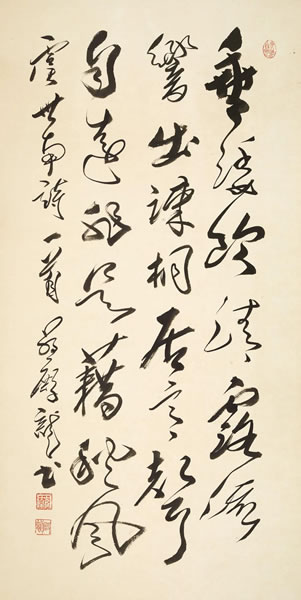 垂緌飲清露流
響出疎桐居高聲
自遠非是藉秋風
虞世南詩一首 龍書